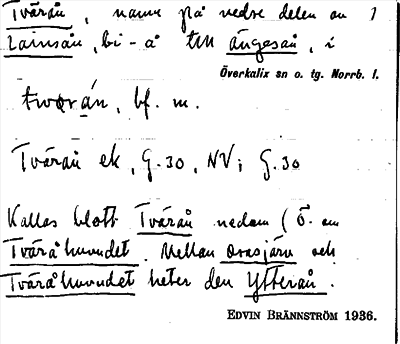 Tvärån, namn på nedre delen av 1
Lainsån, bi-å till ängesån, i
Överkalix sn o. tg. Norrb. l.
twǫrá̱n, bf. m.
Tvärån ek, G.30, NV; G.30
Kallas blott Tvärån nedom (Ö. om
Tväråhuvudet. Mellan Orasjärv och
Tväråhuvudet heter den Ytterån.
EDVIN BRÄNNSTRÖM 1936.